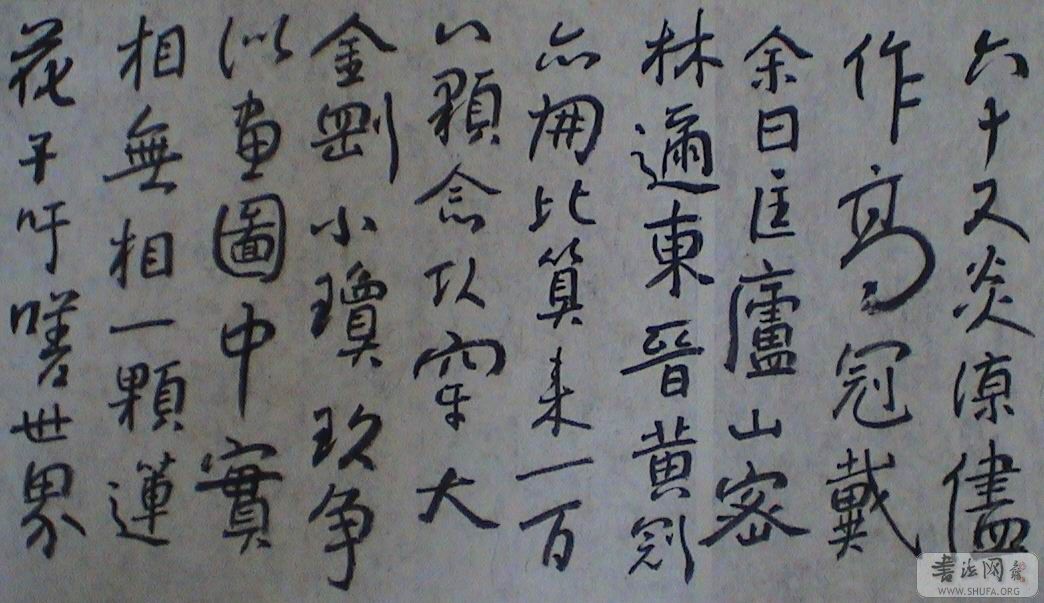 六十又炎凉儘
作高冠戴
余曰匡廬山密
林邇東晉黄劍
亦用比算来一百
八顆念珠牢大
金剛小瓊玖争
似畫圖中實
相無相一顆蓮
花子吁嗟世界
書法网
WWW.SHUFA.ORG